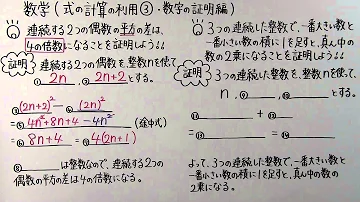 数学(式の計算の利用③・数字の証明編)
連続する2つの偶数の平方の差は、
4の倍数になることを証明しよう!!
証明
連続する2つの偶数を、整数nを使って
① 2n 、② 2n+2 とする。
③ (2n+2)² − ④ (2n)²
=⑤ 4n²+8n+4 − 4n² (途中式)
=⑥ 8n+4 =⑦ 4(2n+1)
⑧ は整数なので、連続する2つの
偶数の平方の差は4の倍数になる。
3つの連続した整数で、一番大きい数と
一番小さい数の積に1を足すと、真ん中の
数の2乗になることを証明しよう!!
証明
3つの連続した整数を、整数nを使って、
n、⑨ 、⑩ とする。
⑪ + ⑫
=⑬ =⑭
よって、3つの連続した整数で、一番大きい数と
一番小さい数の積に1を足すと、真ん中の数の
2乗になる。